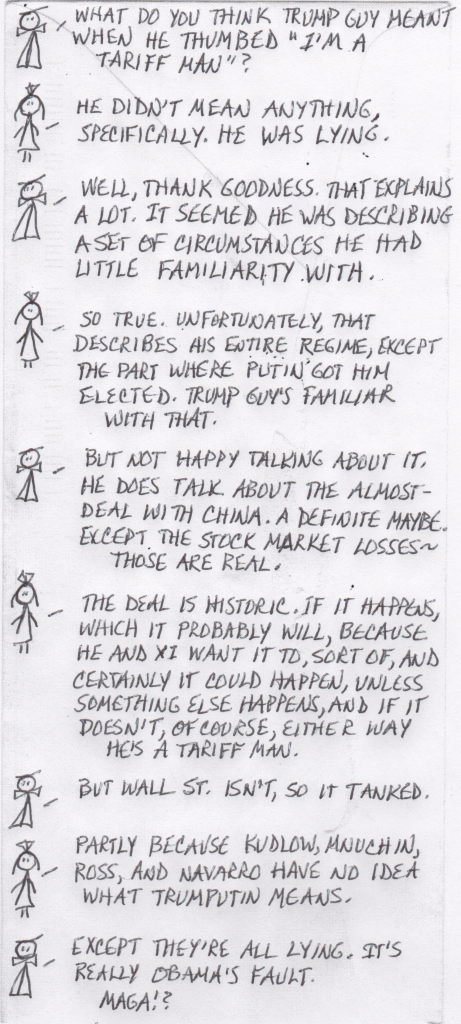 WHAT DO YOU THINK TRUMP GUY MEANT
WHEN HE THUMBED "I'M A
TARIFF MAN"?
HE DIDN'T MEAN ANYTHING,
SPECIFICALLY. HE WAS LYING.
WELL, THANK GOODNESS. THAT EXPLAINS
A LOT. IT SEEMED HE WAS DESCRIBING
A SET OF CIRCUMSTANCES HE HAD
LITTLE FAMILIARITY WITH.
SO TRUE. UNFORTUNATELY, THAT
DESCRIBES HIS ENTIRE REGIME, EXCEPT
THE PART WHERE PUTIN GOT HIM
ELECTED. TRUMP GUY'S FAMILIAR
WITH THAT.
BUT NOT HAPPY TALKING ABOUT IT.
HE DOES TALK ABOUT THE ALMOST-
DEAL WITH CHINA. A DEFINITE MAYBE.
EXCEPT THE STOCK MARKET LOSSES~
THOSE ARE REAL.
THE DEAL IS HISTORIC. IF IT HAPPENS,
WHICH IT PROBABLY WILL, BECAUSE
HE AND XI WANT IT TO, SORT OF, AND
CERTAINLY IT COULD HAPPEN, UNLESS
SOMETHING ELSE HAPPENS, AND IF IT
DOESN'T, OF COURSE, EITHER WAY
HE'S A TARIFF MAN.
BUT WALL ST. ISN'T, SO IT TANKED.
PARTLY BECAUSE KUDLOW, MNUCHIN,
ROSS, AND NAVARRO HAVE NO IDEA
WHAT TRUMPUTIN MEANS.
EXCEPT THEY'RE ALL LYING. IT'S
REALLY OBAMA'S FAULT.
MAGA!?